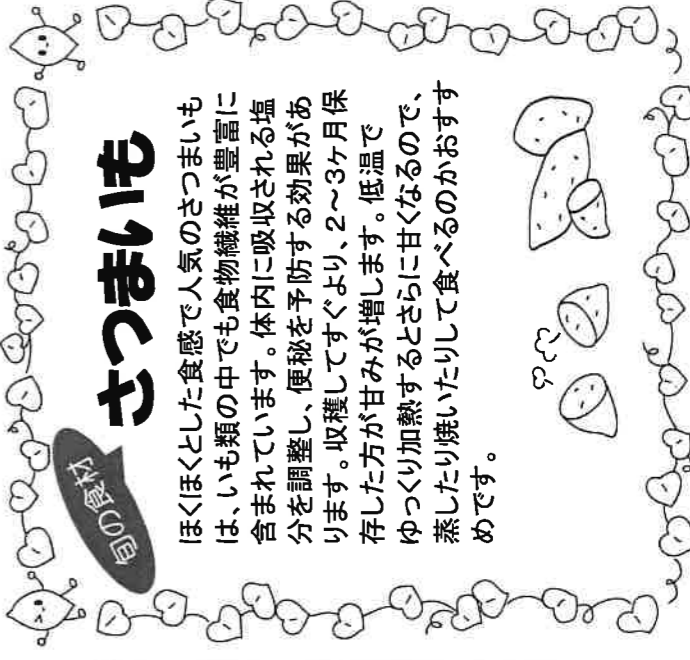 旬の食材
さつまいも
ほくほくとした食感で人気のさつまいも
は、いも類の中でも食物繊維が豊富に
含まれています。体内に吸収される塩
分を調整し、便秘を予防する効果があ
ります。収穫してすぐより、2～3ヶ月保
存した方が甘みが増します。低温で
ゆっくり加熱するとさらに甘くなるので、
蒸したり焼いたりして食べるのがおすす
めです。